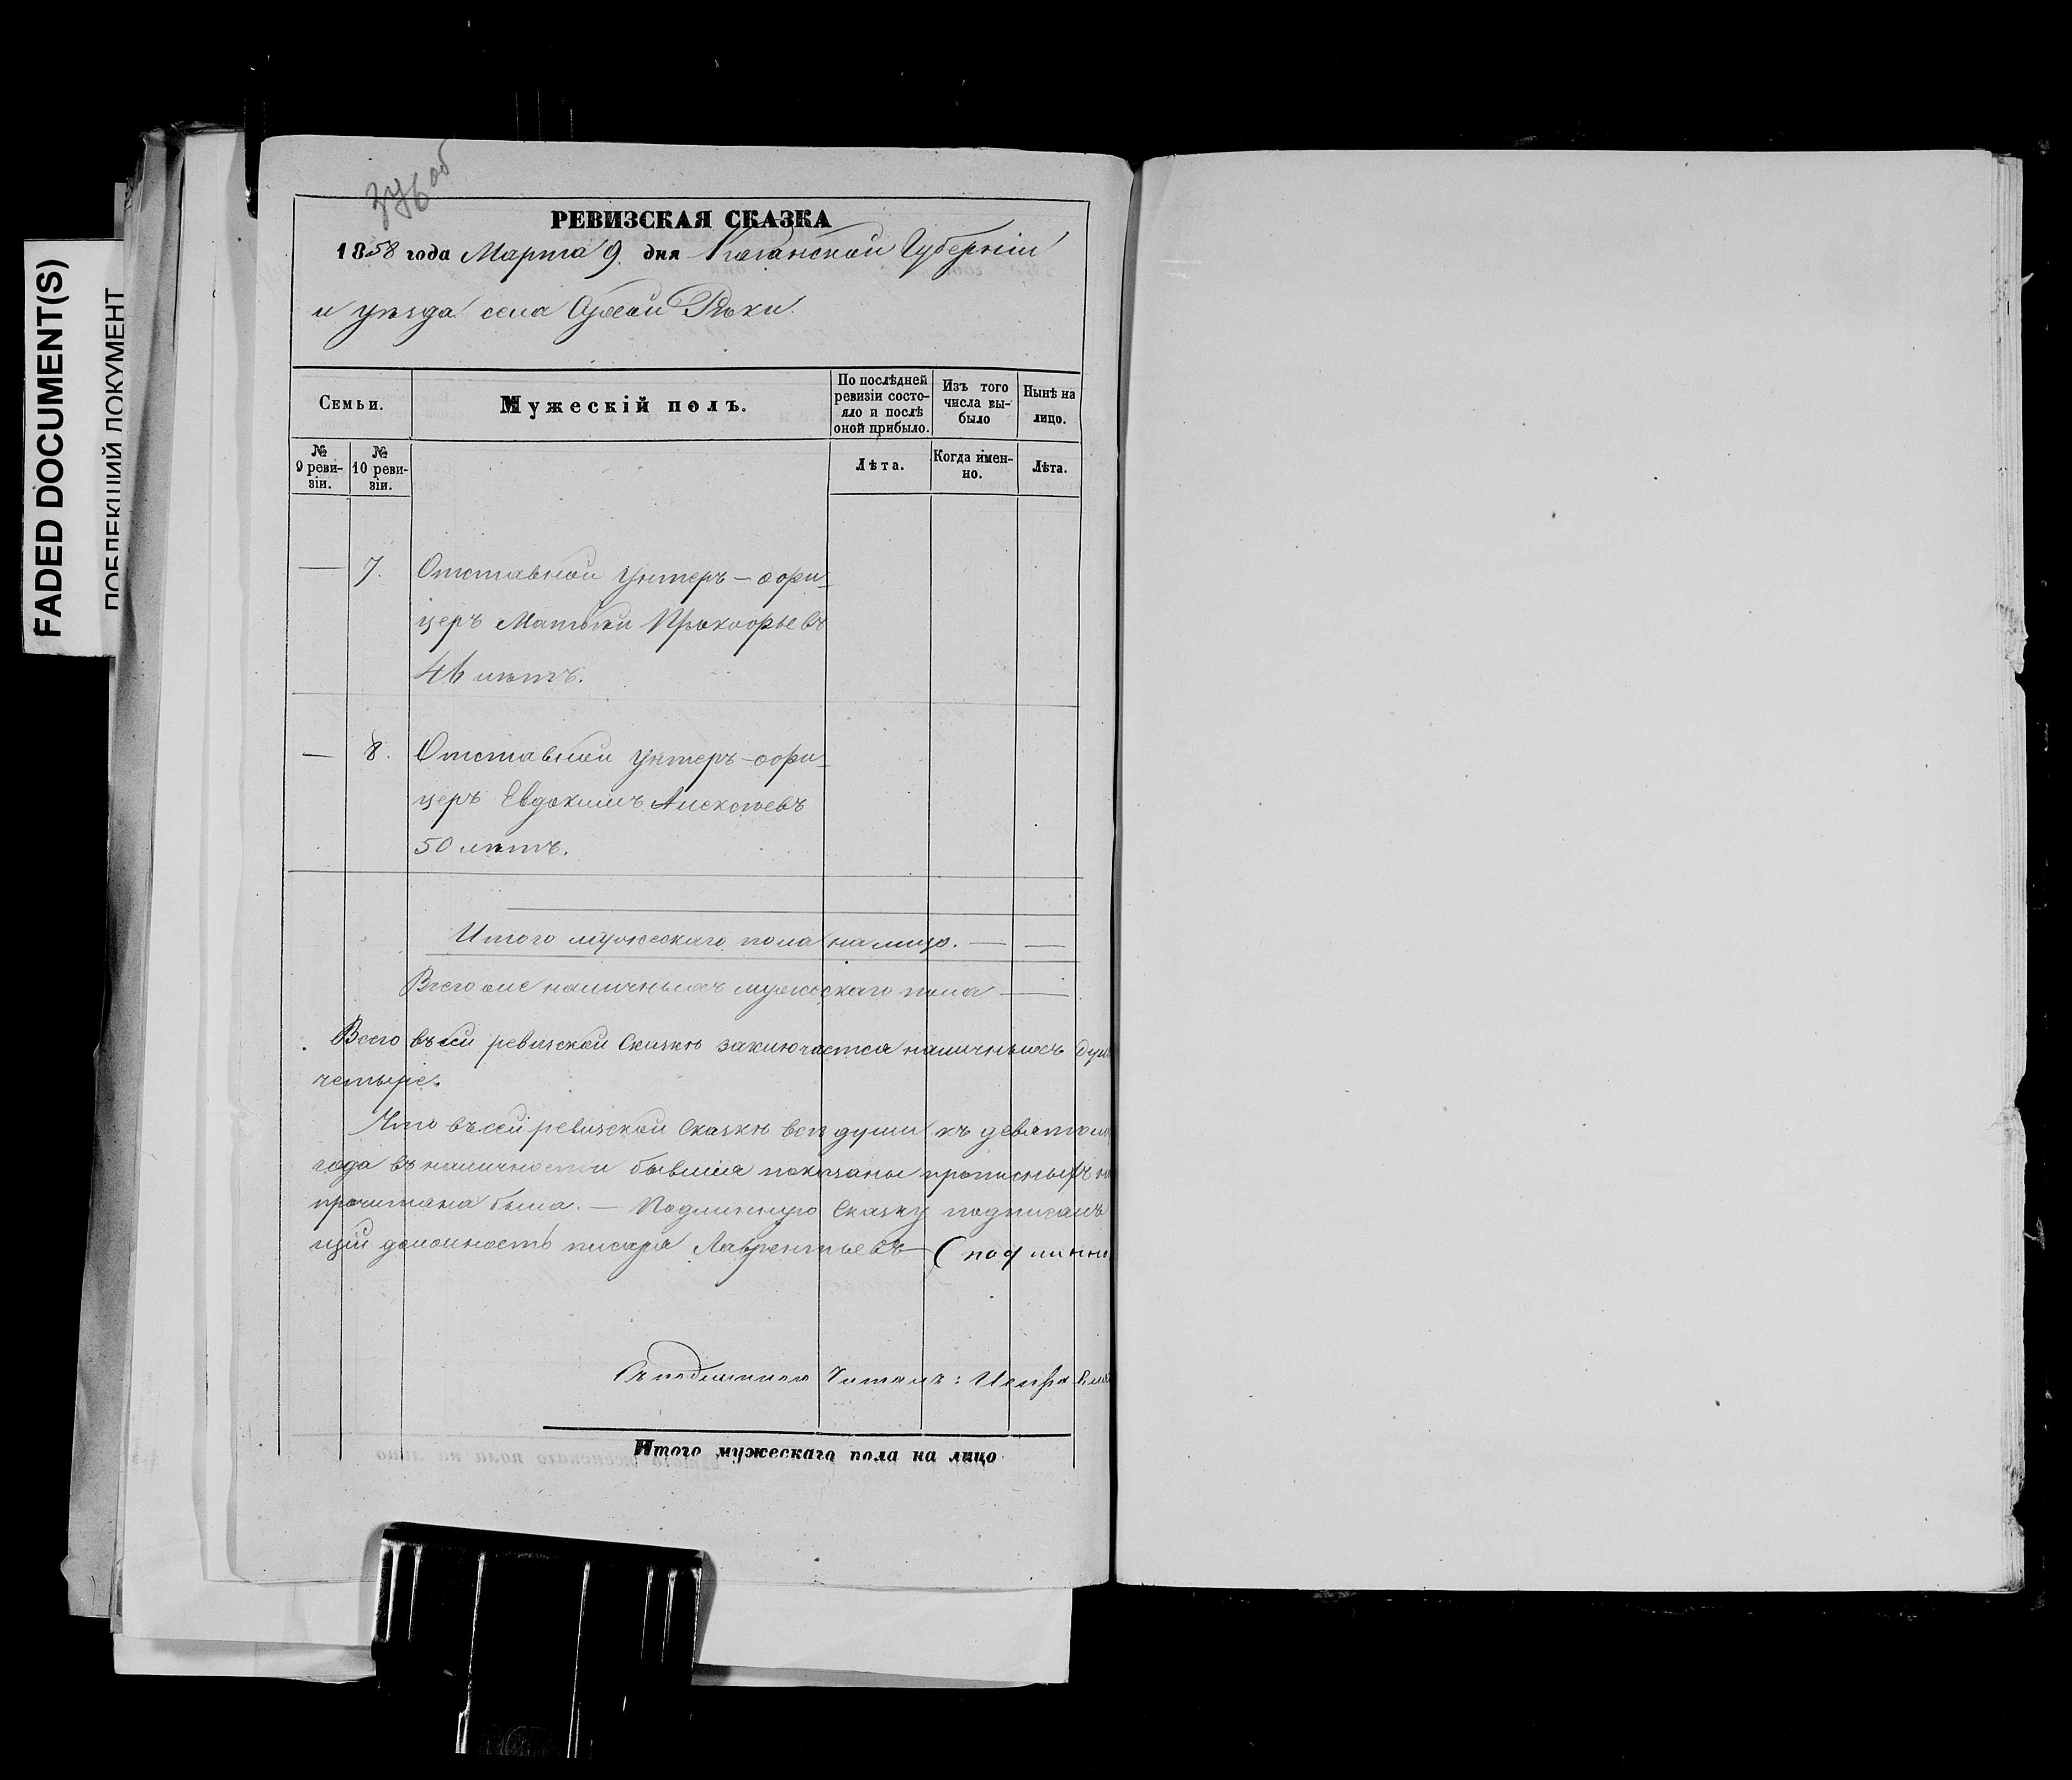 FADED DOCUMENT(S)
ПОБЛЕКШИЙ ДОКУМЕНТ
376 об
РЕВИЗСКАЯ СКАЗКА
1858 года Марта 9. дня Казанской Губерніи
и уѣзда села Сухой Рѣки.
Семьи.
Мужескій полъ.
По послѣдней ревизіи состояло и послѣ оной прибыло.
Изъ того числа выбыло
Нынѣ на лицо.
№ 9 ревизіи.
№ 10 ревизіи.
Лѣта.
Когда именно.
Лѣта.
— 7. Отставной Унтеръ-офи-
церъ Матвѣй Прокофьевъ
46 лѣтъ.
— 8. Отставной Унтеръ-офи-
церъ Евдокимъ Алексѣевъ
50 лѣтъ.
Итого мужескаго пола на лицо. — —
Всего наличныхъ мужескаго пола —
Всего въ сей ревизской сказкѣ заключается наличныхъ душ
четыре.
Что въ сей ревизской сказкѣ всѣ души къ девятому
года въ наличности бывшія показаны прописныхъ н
прочитана была. — Подлинную Сказку подписалъ
щій должность писаря Лаврентьевъ — (подлинно
Съ подлиннымъ Читалъ: Исправля
Итого мужескаго пола на лицо